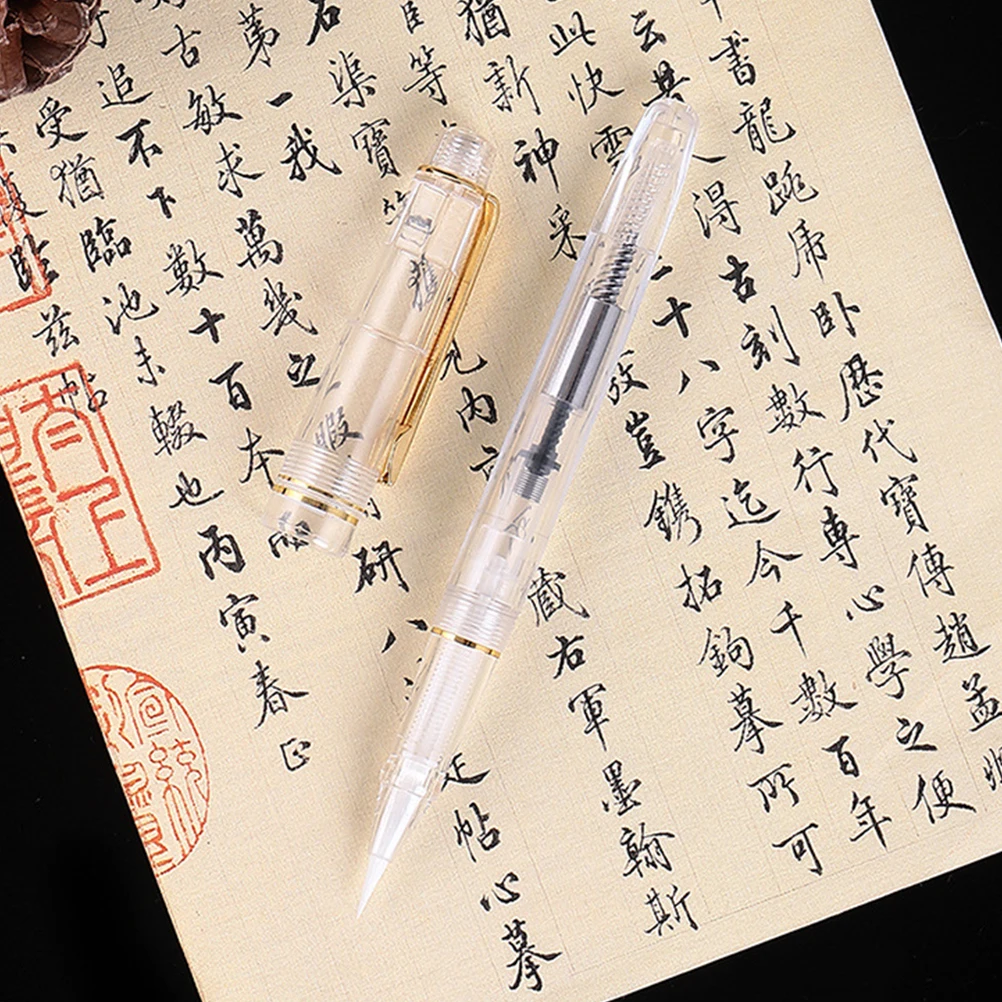 書龍跳虎卧歷代寶傳趙孟
云其人得古刻數行專心學之便
此快雪二十八字迄今千數百年
猶新神采攷豈鐫拓鉤摹所可
等
石渠寶内蔵右軍墨翰斯
第一我
古敏求萬幾之暇研八帖心摹
追不下數十百本而
受猶臨池未輟也丙寅春正
臨茲帖